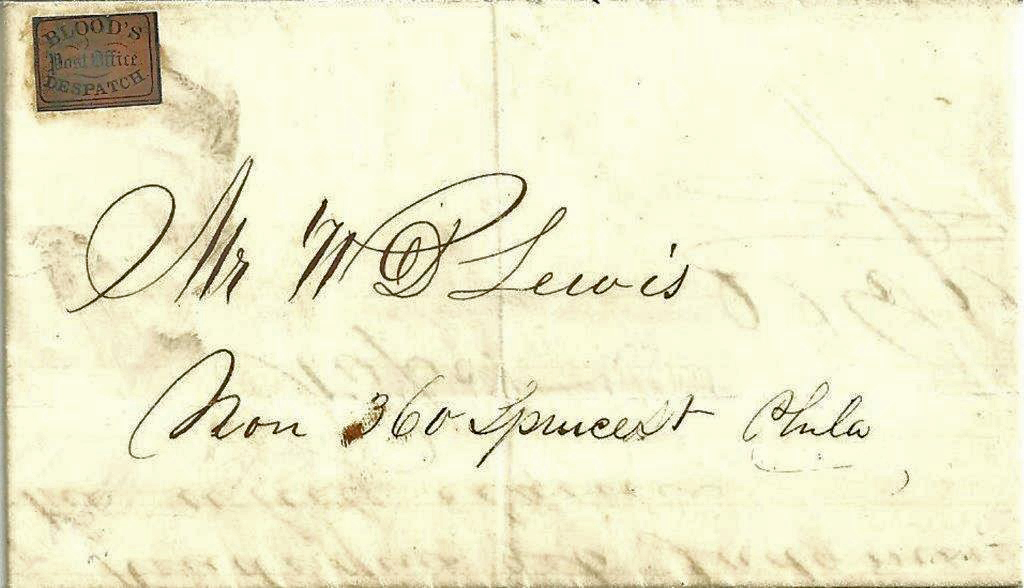 BLOOD'S
Post Office
DESPATCH
Mr W D Lewis
360 Spruce St Phila